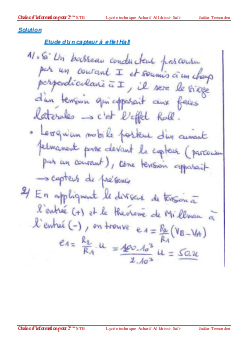 Chaîne d'information pour 2ème STE
Solution
Etude d'un capteur à effet Hall
1/. Si Un barreau conducteur parcouru
par un courant I et soumis à un champ
perpendiculaire à I, il sera le siège
d'un tension qui apparait aux faces
latérales → c'est l'effet Hall.
• Lorsqu'un mobile porteur d'un aimant
permanent passe devant le capteur (parcouru
par un courant), une tension apparait
→ capteur de présence
2/ En appliquant le diviseur de tension à
l'entrée (+) et le théorème de Millman à
l'entrée (-), on trouve e1 = R2/R1 (VB - VA)
e1 = R2/R1 . u = 100.10³/2.10³ u = 50.u
Chaîne d'information pour 2ème STE